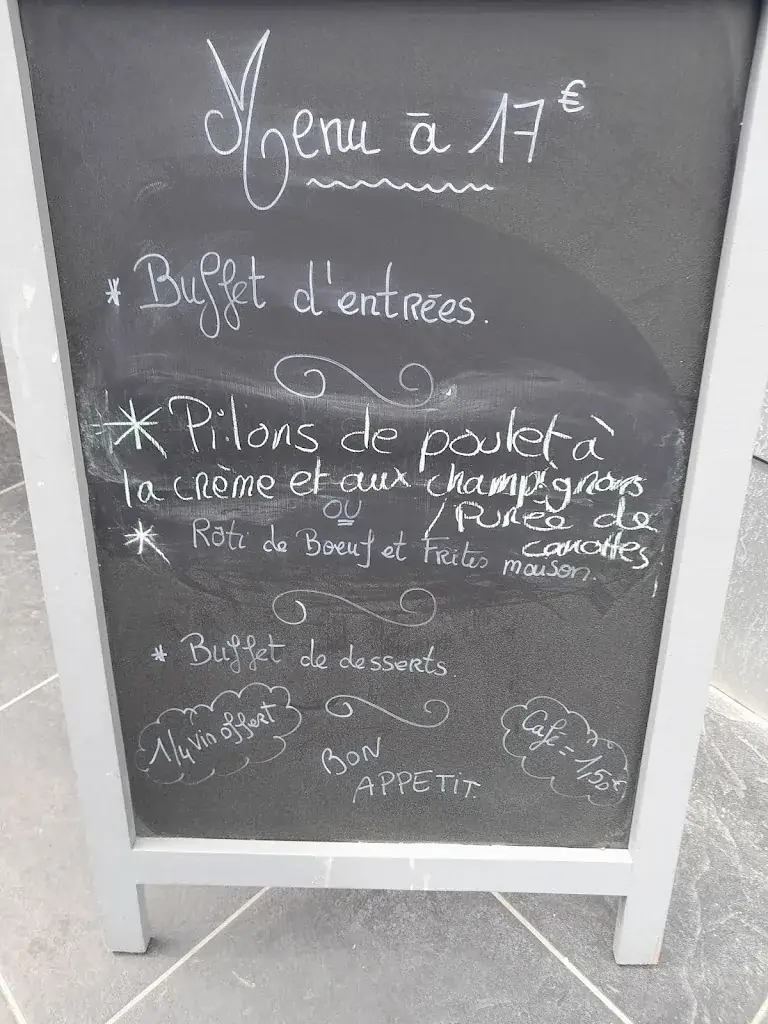 Menu à 17€
* Buffet d'entrées.
* Pilons de poulet à
la crème et aux champignons
OU
/ Purée de
carottes
* Rôti de Boeuf et Frites maison.
* Buffet de desserts.
1/4 vin offert
Café = 1,50€
BON
APPETIT.